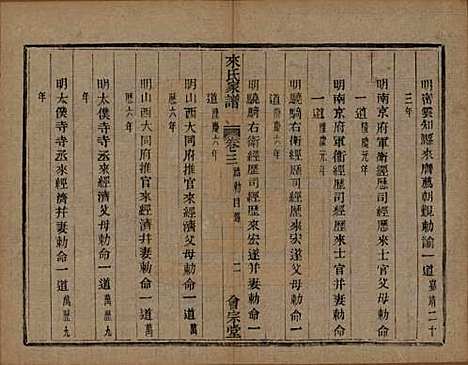 明密雲知縣來廣萬朝覲勅諭一道嘉靖二十
三年
明南京府軍衛經歷司經歷來士官父母勅命
一道隆慶元年
明南京府軍衛經歷司經歷來士官并妻勅命
一道隆慶元年
明驍騎右衛經歷司經歷來宏遂父母勅命一
道隆慶六年
來氏家譜
卷三 誥勅目錄
二
會宗堂
明驍騎右衛經歷司經歷來宏遂并妻勅命一
道隆慶六年
明山西大同府推官來經濟父母勅命一道萬
歷六年
明山西大同府推官來經濟并妻勅命一道萬
歷六年
明太僕寺寺丞來經濟父母勅命一道萬歷九
年
明太僕寺寺丞來經濟并妻勅命一道萬歷九
年